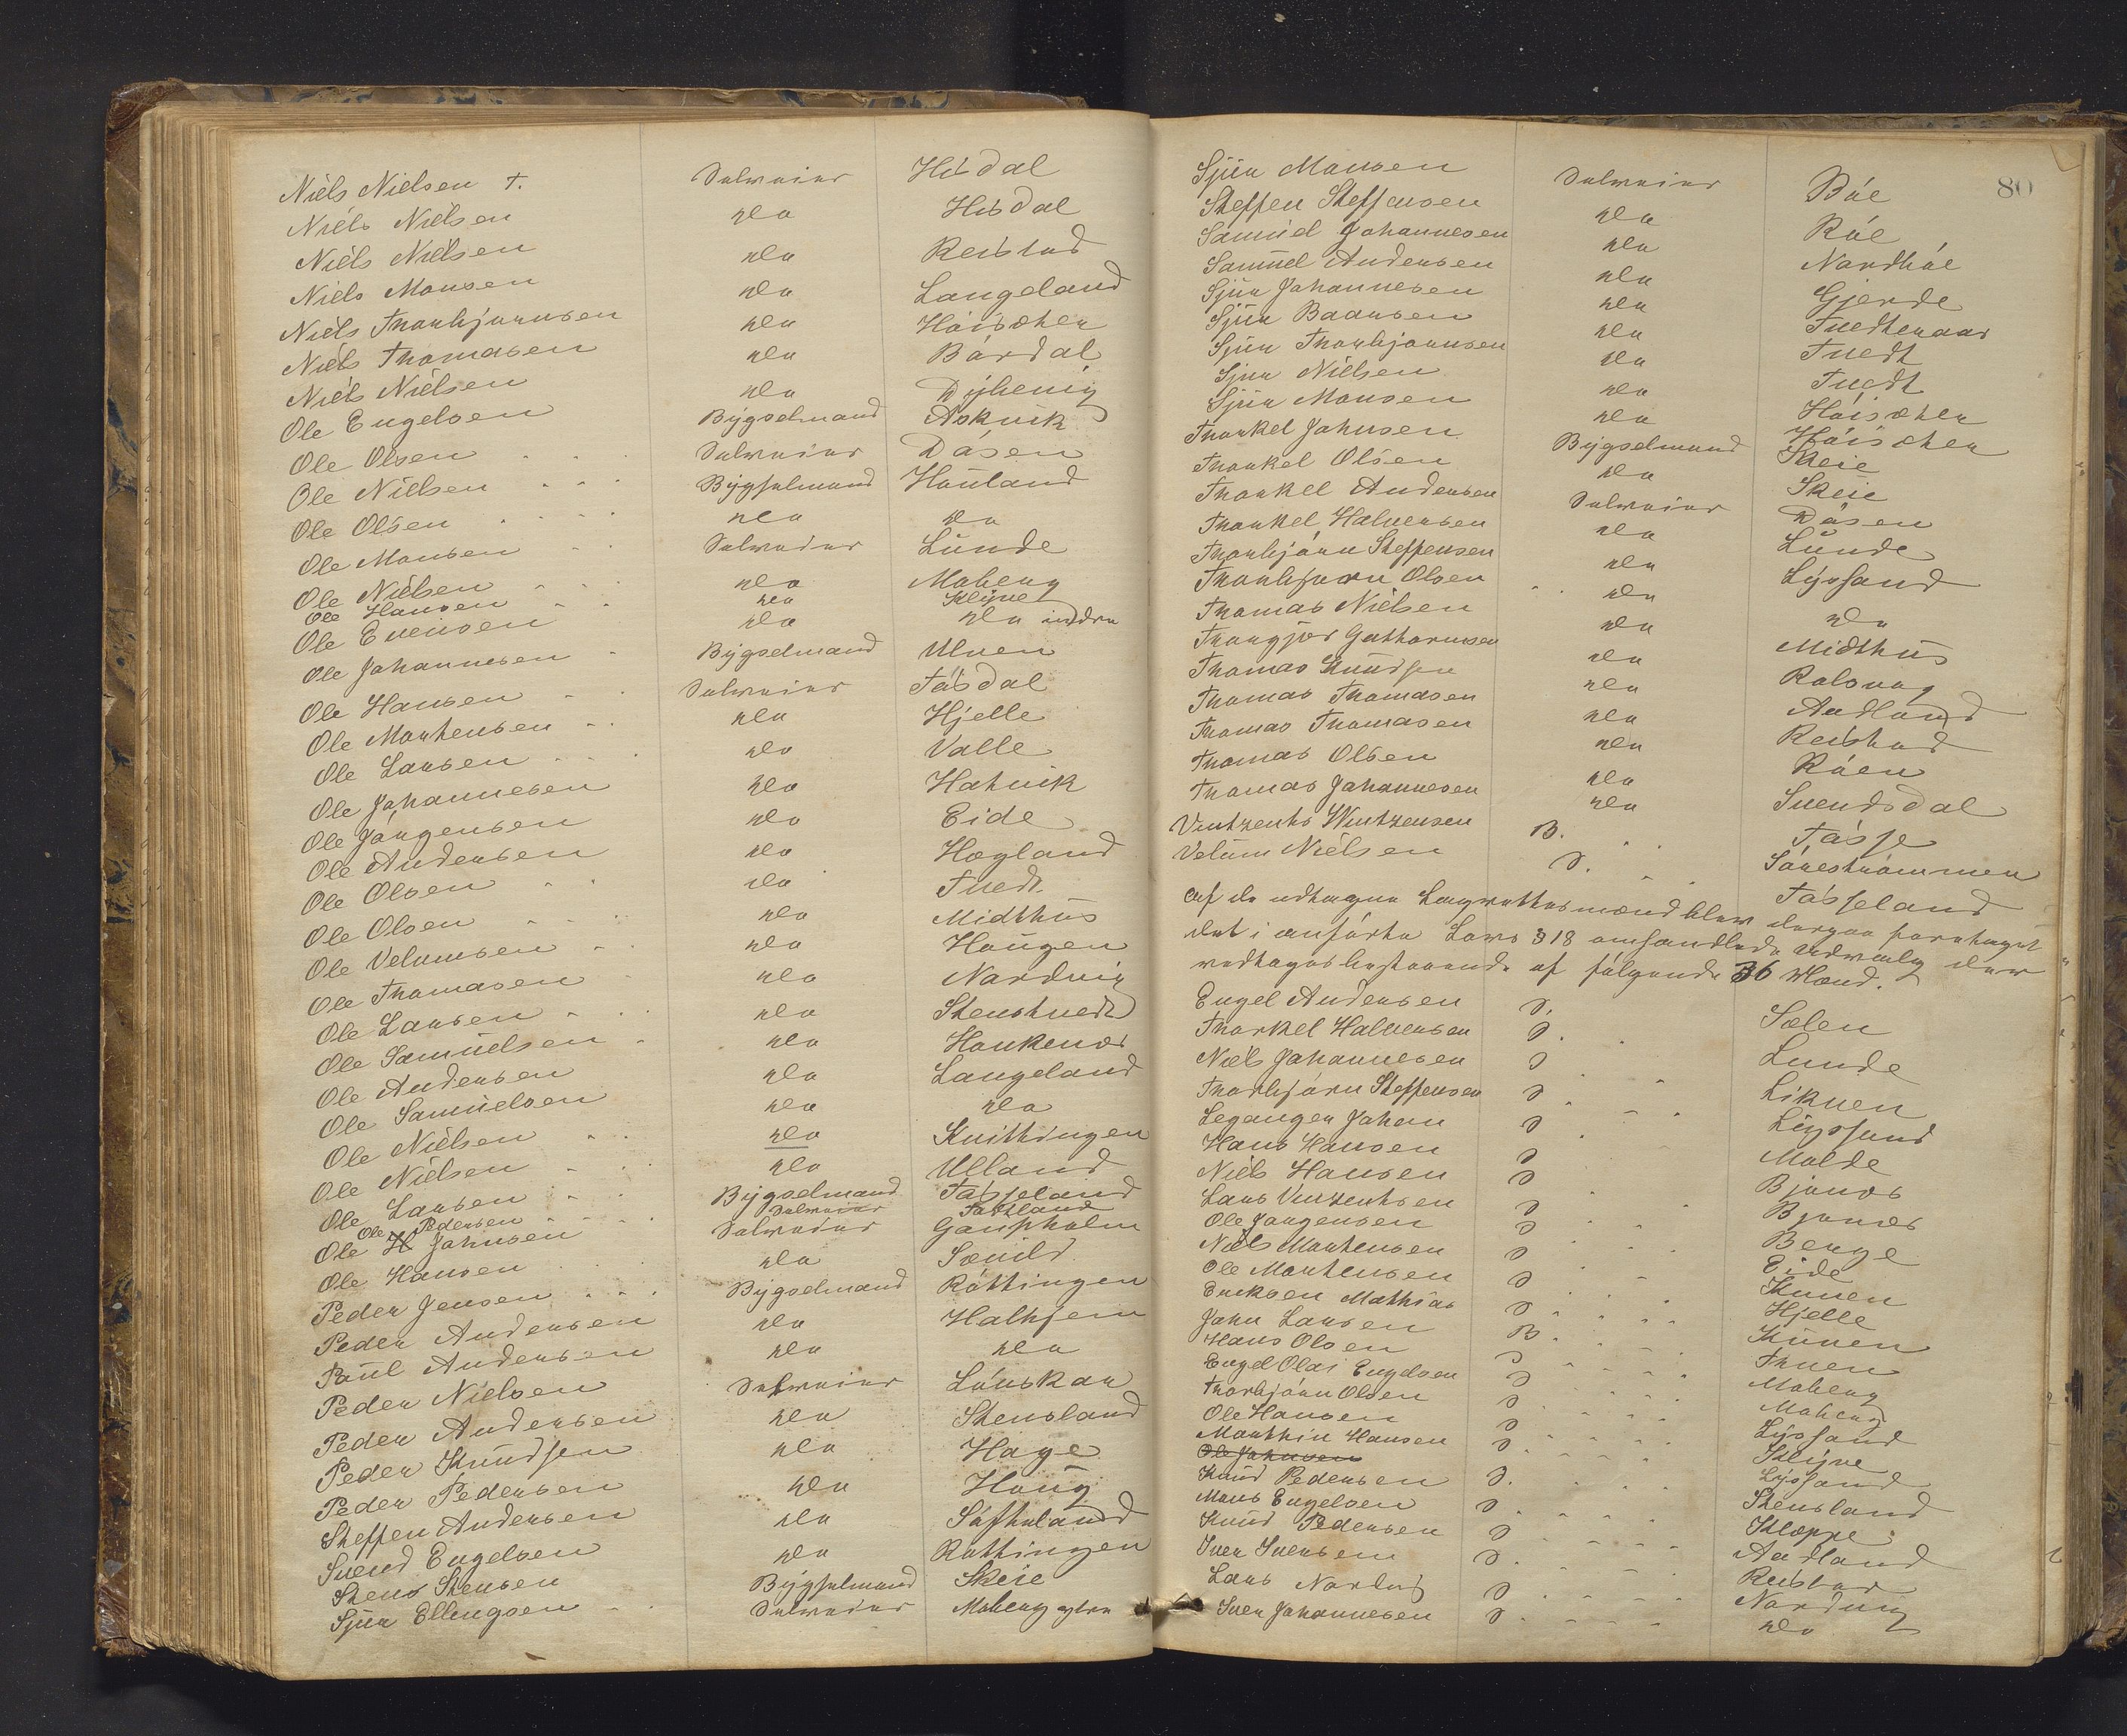 Niels Nielsen †. Selveier Hisdal
Niels Nielsen do Hisdal
Niels Nielsen do Reistad
Niels Monsen do Langeland
Niels Thorbjørnsen do Høisæter
Niels Thomasen do Bórdal
Niels Nielsen do
Ole Engelsen Bygselmand Askvik
Ole Olsen Selveier Døsen
Ole Nielsen Bygselmand Houland
Ole Olsen do do
Ole Monsen Selveier Lunde
Ole Nielsen do Moberg
Ole Hansen do Klyve
Ole Evensen do do indre
Ole Johannesen Bygselmand Ulven
Ole Hansen Selveier Tøsdal
Ole Mortensen do Hjelle
Ole Larsen do Valle
Ole Johannesen do Hatvik
Ole Jørgensen do Eide
Ole Andersen do Hægland
Ole Olsen do Tvedt
Ole Olsen do Midthus
Ole Velomsen do Hougen
Ole Thomasen do Nordvig
Ole Larsen do Stenstvedt
Ole Samuelsen do Haukenæs
Ole Andersen do Langeland
Ole Samuelsen do do
Ole Nielsen do Knithingen
Ole Nielsen do Ulland
Ole Larsen Bygselmand Tøsseland
Ole Pedersen Selveier
Ole H Johnsen Selveier Gaupholm
Ole Hansen do Sævild
Peder Jensen Bygselmand Røttingen
Peder Andersen do Halhjem
Poul Andersen do do
Peder Nielsen Selveier
Peder Andersen do Stensland
Peder Knudsen do Hage
Peder Pedersen do Houg
Steffen Andersen do Søfteland
Svend Engelsen do Røttingen
Stens Stensen Bygselmand Skeie
Sjur Ellingsen Selveier Moberg ytre
80
Sjur Monsen Selveier Bøe
Steffen Steffensen do Røe
Samuel Johannesen do Nordbøe
Samuel Andersen do Gjerde
Sjur Johannesen do Tvedteraas
Sjur Baarsen do Tvedt
Sjur Thorbjørnsen do Tvedt
Sjur Nielsen do Høisæter
Sjur Monsen do Høisæter
Thorkel Johnsen Bygselmand Skeie
Thorkel Olsen do Skeie
Thorkel Andersen Selveier Døsen
Thorkel Halversen do Lunde
Thorbjørn Steffensen do Lyssand
Thorbjørn Olsen do do
Thomas Nielsen do Midthus
Thorgjer Guthormsen do Rolsvag
Thomas Knudsen do Aadland
Thomas Thomasen do Reistad
Thomas Thomasen do Røen
Thomas Olsen do Svendsdal
Thomas Johannesen do Tøsse
Vintzents Wintzensen B. Sørestrømmen
Velum Nielsen S. Tøsseland
Af de udtagne Lagrettesmænd blev derpaa foretaget
det i anførte Lovs § 18 omhandlede Udvalg der
vedtages bestaaende af følgende 36 Mænd.
Engel Andersen S. Sælen
Thorkel Halversen S. Lunde
Niels Johannesen S Liknen
Thorbjørn Steffensen S Lyssand
Legangen Johan S Molde
Hans Hansen S Bjønæs
Niels Hansen S Bjønæs
Lars Vinzentsen S Berge
Ole Jørgensen S Eide
Niels Mortensen S Kuven
Ole Mortensen S Hjelle
Ericksen Mathias S Kuven
John Larsen B. Thuen
Hans Olsen S Moberg
Engel Olai Engelsen S Moberg
Thorbjørn Olsen S Lyssand
Ole Hansen S Klyve
Marthin Hansen S Lyssand
Ole Johnsen
Knud Pedersen S. Stensland
Mons Engelsen S Kloppe
Knud Pedersen S Aadland
Iver Iversen S. Reistad
Lars Nordvig S Nordvig
Iver Johannesen S do